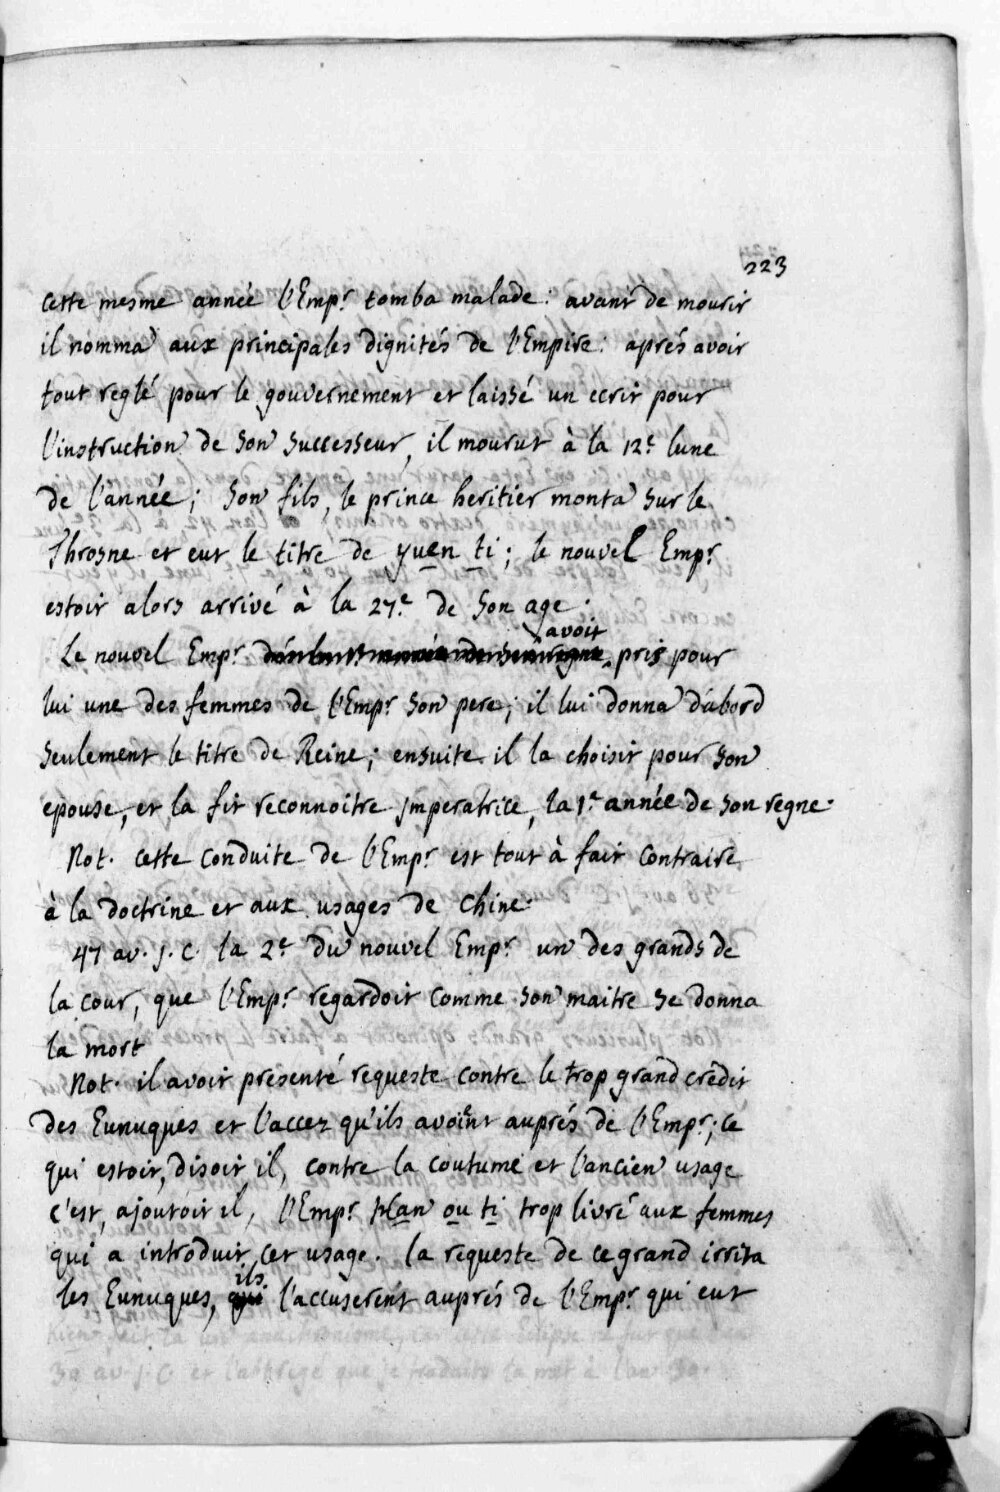 223
cette mesme année l'Emp.r tomba malade: avant de mourir
il nomma aux principales dignités de l'Empire: aprés avoir
tout reglé pour le gouvernement et laissé un ecrit pour
l'instruction de son successeur, il mourut à la 12.e lune
de l'année; son fils, le prince heritier monta sur le
Throsne et eut le titre de yuen ti; le nouvel Emp.r
estoit alors arrivé à la 27.e de son age.
avoit
Le nouvel Emp.r pris pour
lui une des femmes de l'Emp.r son pere; il lui donna d'abord
seulement le titre de Reine; ensuite il la choisit pour son
epouse, et la fit reconnoitre imperatrice, la 1.e année de son regne.
Not. cette conduite de l'Emp.r est tout à fait contraire
à la doctrine et aux usages de Chine.
47 av. j. C. la 2.e du nouvel Emp.r un des grands de
la cour, que l'Emp.r regardoit comme son maitre se donna
la mort
Not. il avoit presenté requeste contre le trop grand credit
des Eunuques et l'accez qu'ils avoint auprés de l'Emp.r; ce
qui estoit, disoit il, contre la coutume et l'ancien usage
c'est, ajoutoit il, l'Emp.r han ou ti trop livré aux femmes
qui a introduit cet usage. la requeste de ce grand irrita
ils
les Eunuques, qui l'accuserent auprés de l'Emp.r qui eut